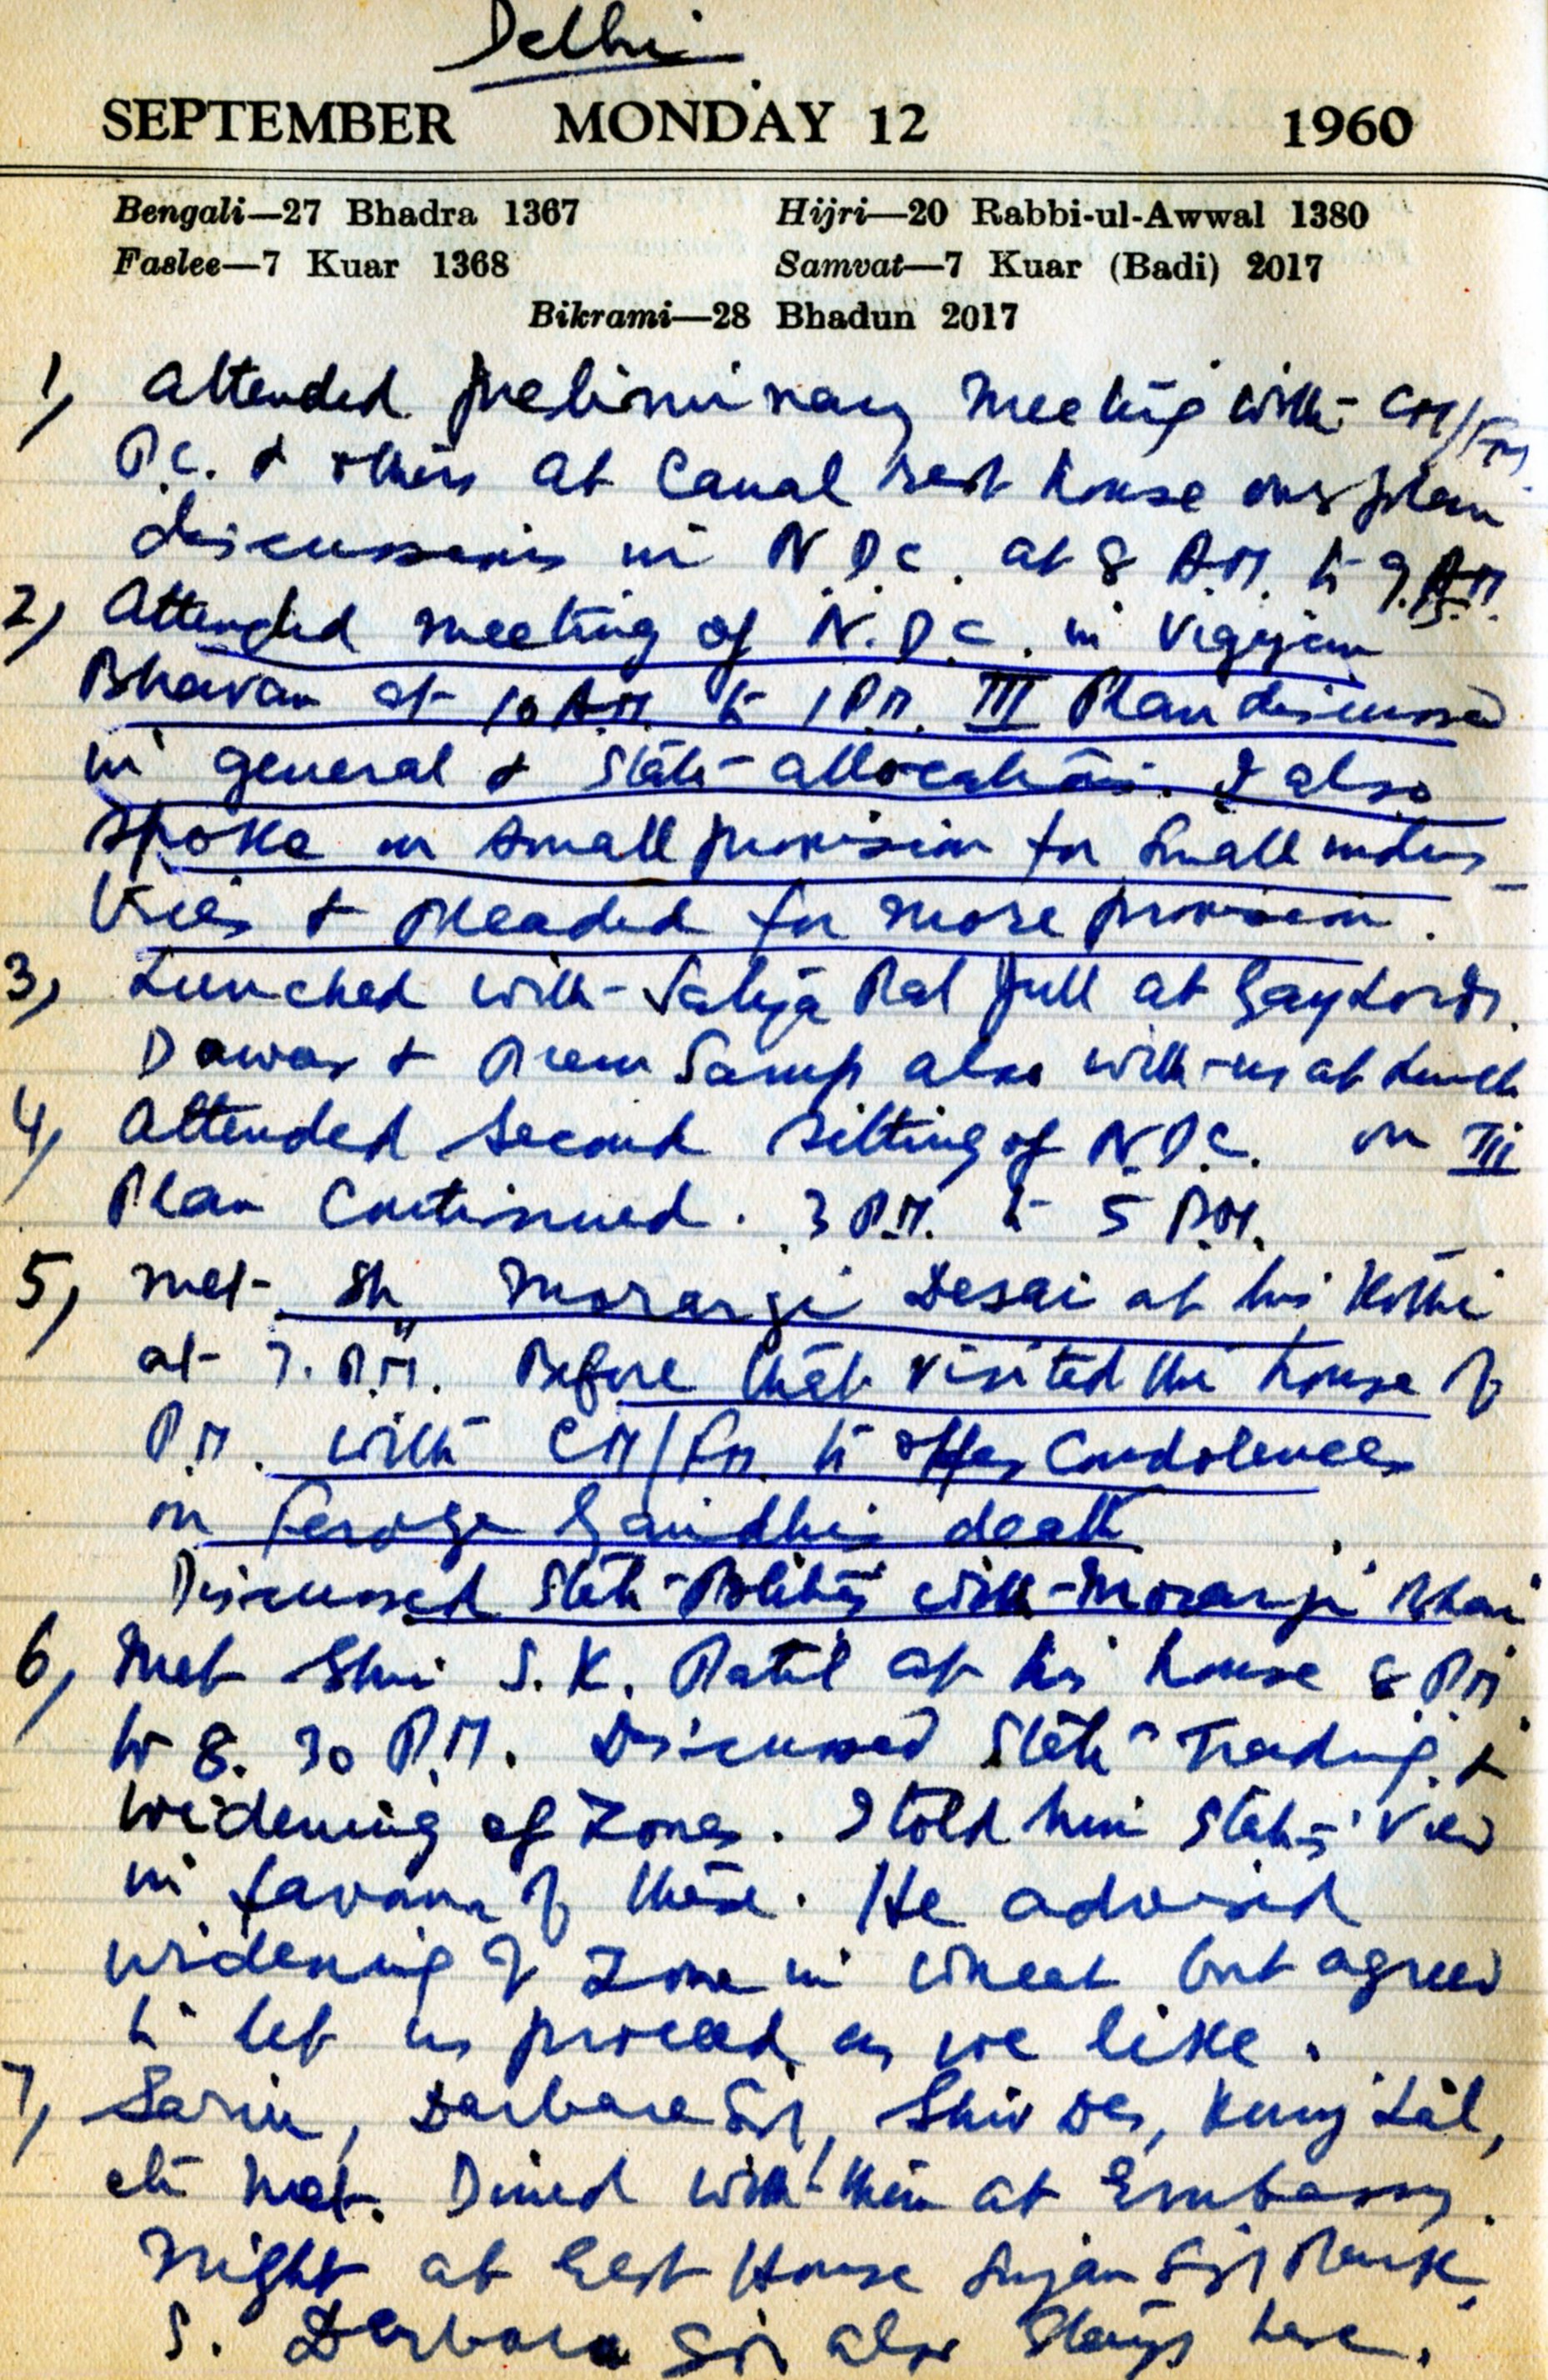 Delhi
SEPTEMBER MONDAY 12 1960
Bengali—27 Bhadra 1367 Hijri—20 Rabbi-ul-Awwal 1380
Faslee—7 Kuar 1368 Samvat—7 Kuar (Badi) 2017
Bikrami—28 Bhadun 2017
1, Attended preliminary meeting with CM/FM,
P.C. & others at Canal rest house our plan
discussions in N.D.C. at 8 A.M. to 9.15 A.M.
2, Attended meeting of N.D.C. in Vigyan
Bhavan at 10 A.M. to 1 P.M. III Plan discussed
in general & State allocations. I also
spoke on small provision for small indus-
tries & pleaded for more provision.
3, Lunched with Satya Pal at Gaylords.
Dawar & Prem Sarup also with us at Lunch
4, Attended second sitting of N.D.C. on III
Plan Continued. 3 P.M. to 5 P.M.
5, Met Sh Morarji Desai at his Kothi
at 7. P.M. Before that visited the house of
P.M. with CM/FM to offer Condolences
on Feroze Gandhi's death
Discussed State Politics with Morarji Bhai
6, Met Shri S.K. Patil at his house 8 P.M.
to 8.30 P.M. Discussed State Trading &
widening of Zones. I told him State's view
in favour of these. He advised
widening of Zone in wheat but agreed
to let us proceed as we like.
7, Sarin, Darbara Singh, Shiv Das, Kunj Lal,
etc met. Dined with them at Embassy.
Night at Guest House Sujan Singh Park.
S. Darbara Singh also stays here.